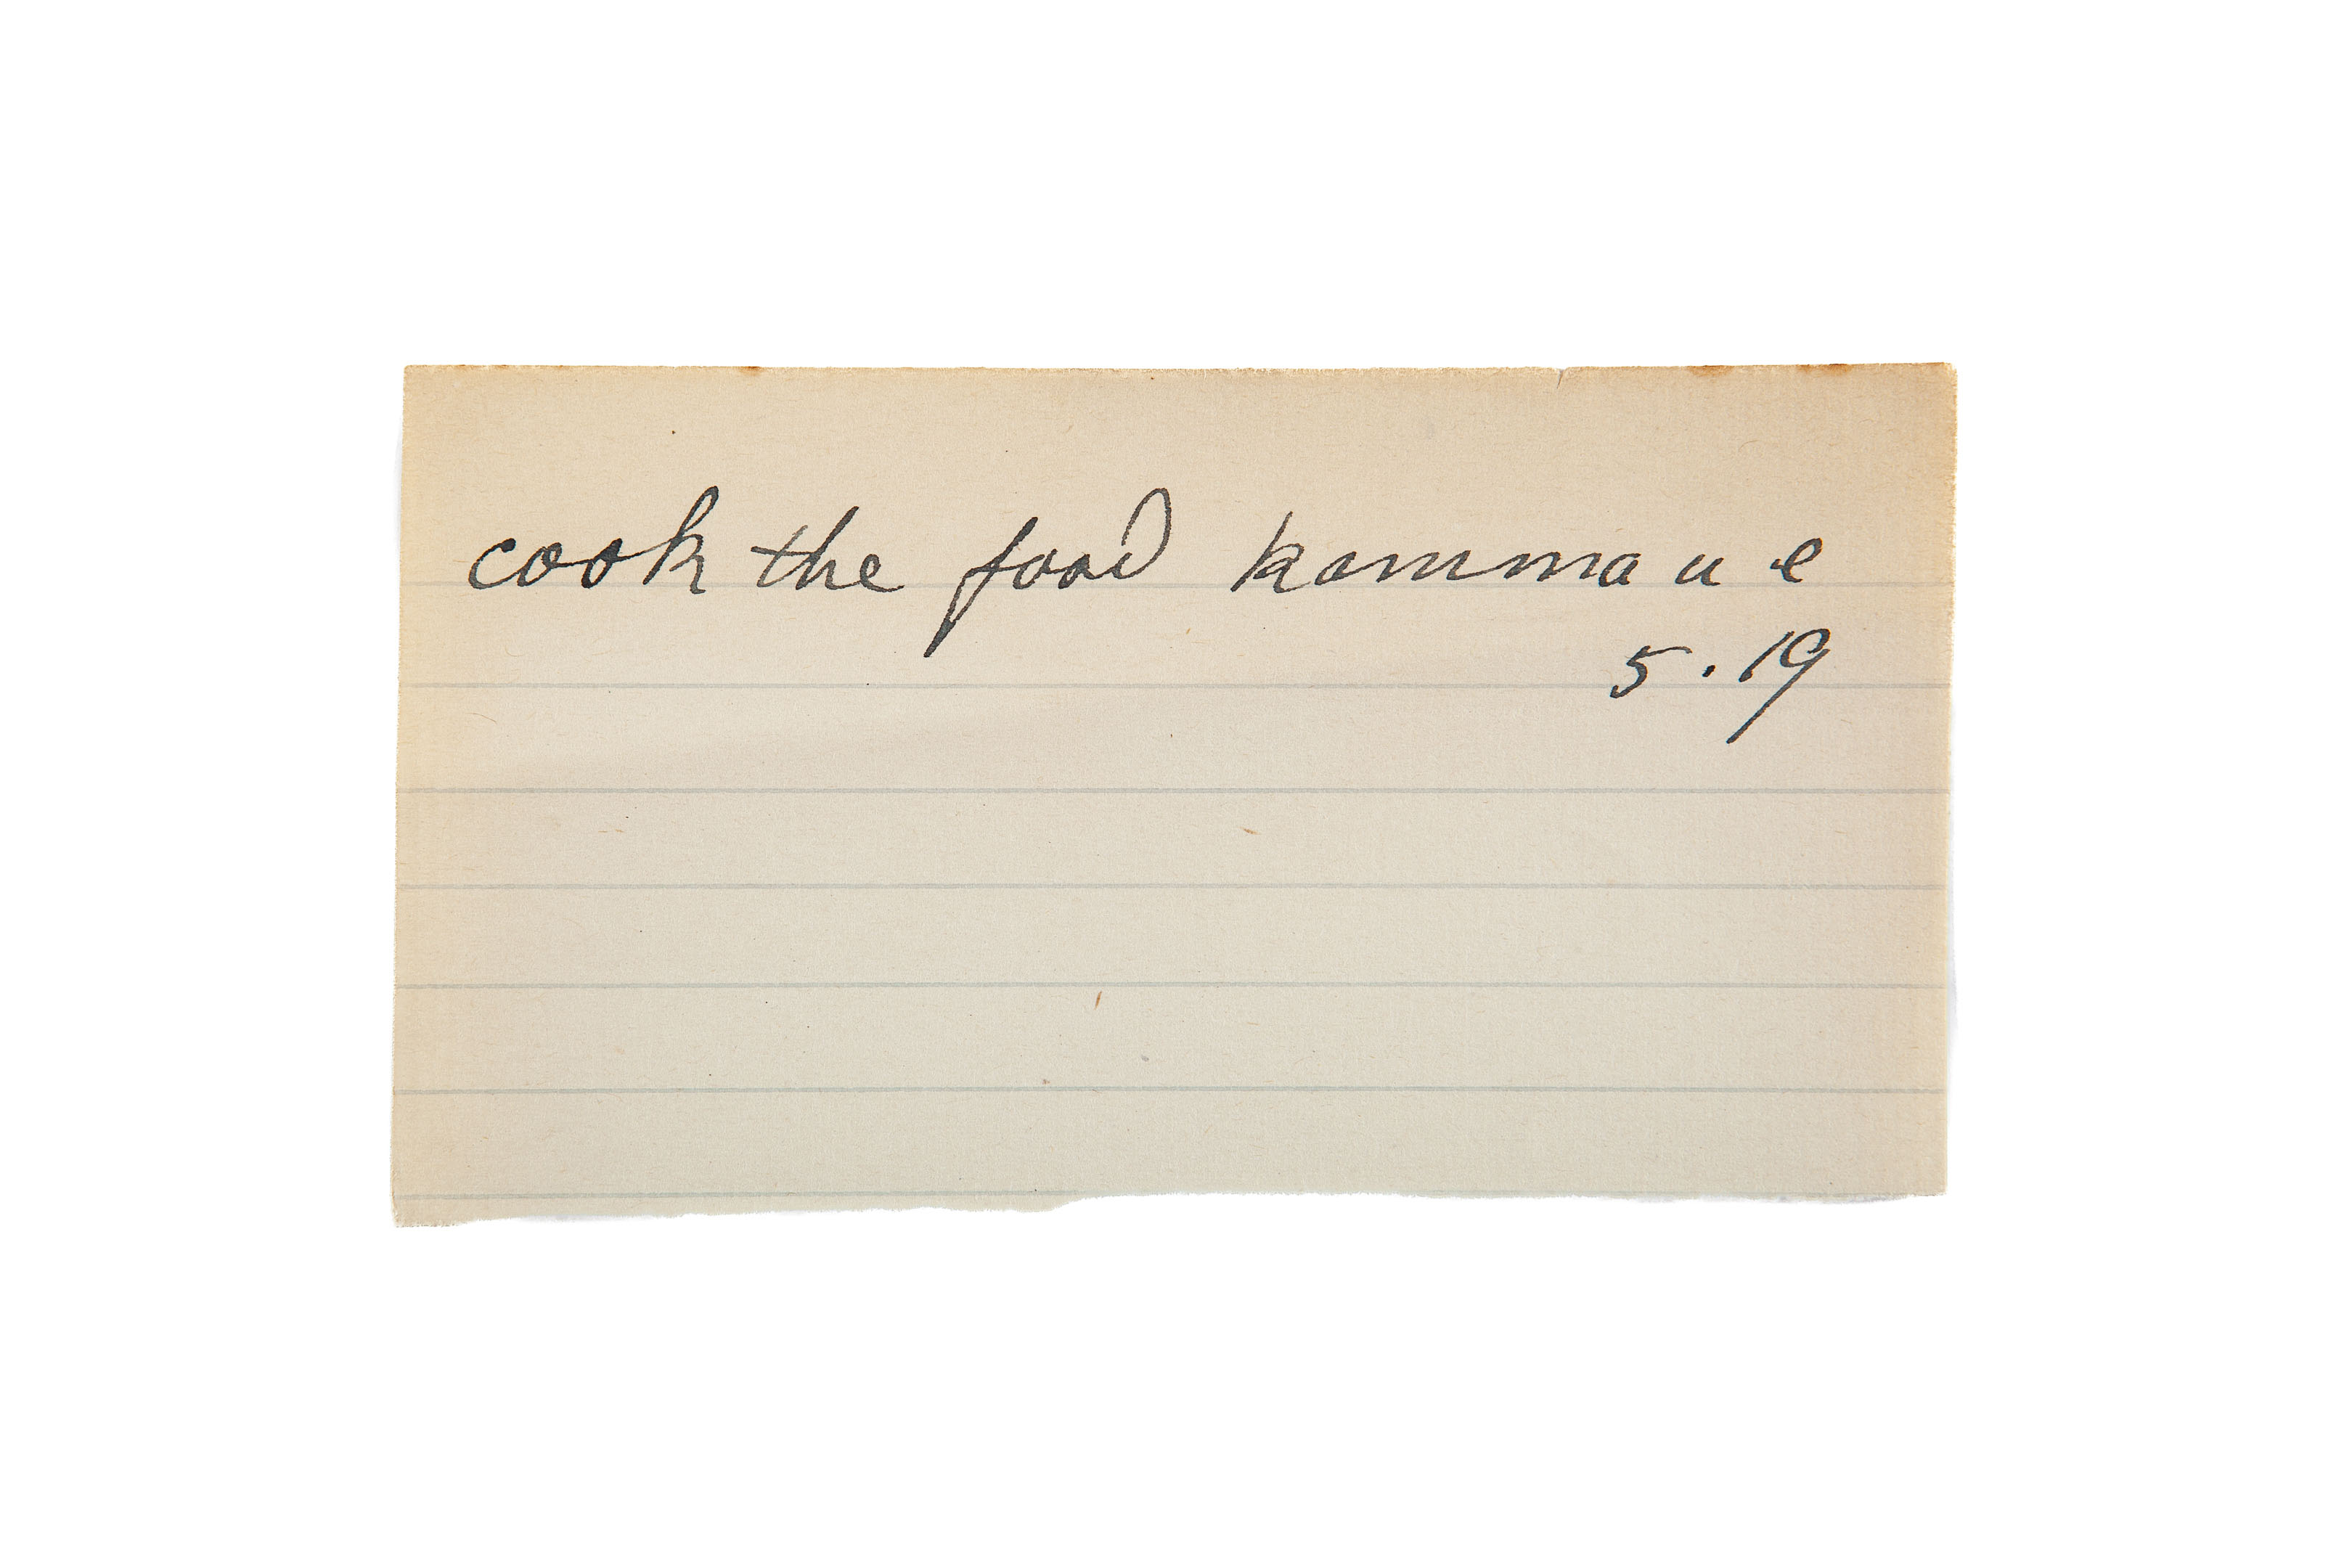 cook the food kamma u e
5.19